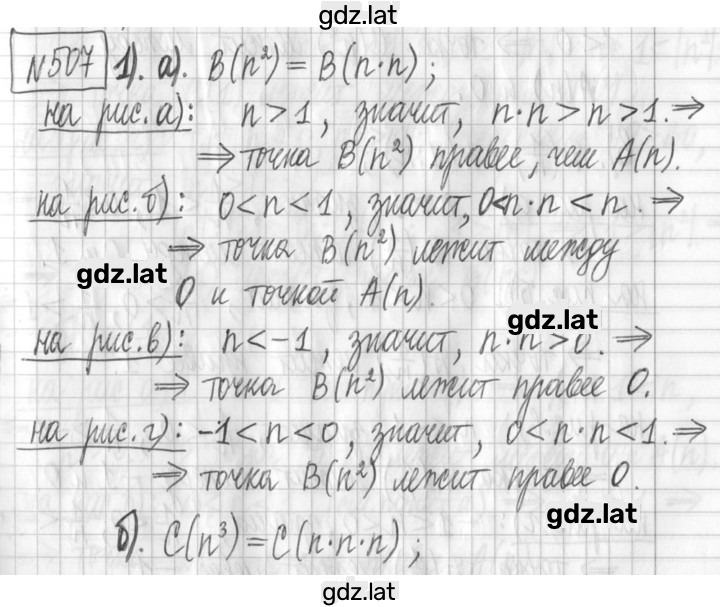 gdz.lat
№507 1). а). B(n²) = B(n·n);
на рис. а): n>1, значит, n·n>n>1. ⇒
⇒ точка B(n²) правее, чем A(n).
на рис. б): 0<n<1, значит, 0<n·n<n. ⇒
⇒ точка B(n²) лежит между
gdz.lat
0 и точкой A(n).
gdz.lat
на рис. в): n<-1, значит, n·n>0. ⇒
⇒ точка B(n²) лежит правее 0.
на рис. г): -1<n<0, значит, 0<n·n<1. ⇒
⇒ точка B(n²) лежит правее 0.
gdz.lat
б). C(n³) = C(n·n·n);
gdz.lat